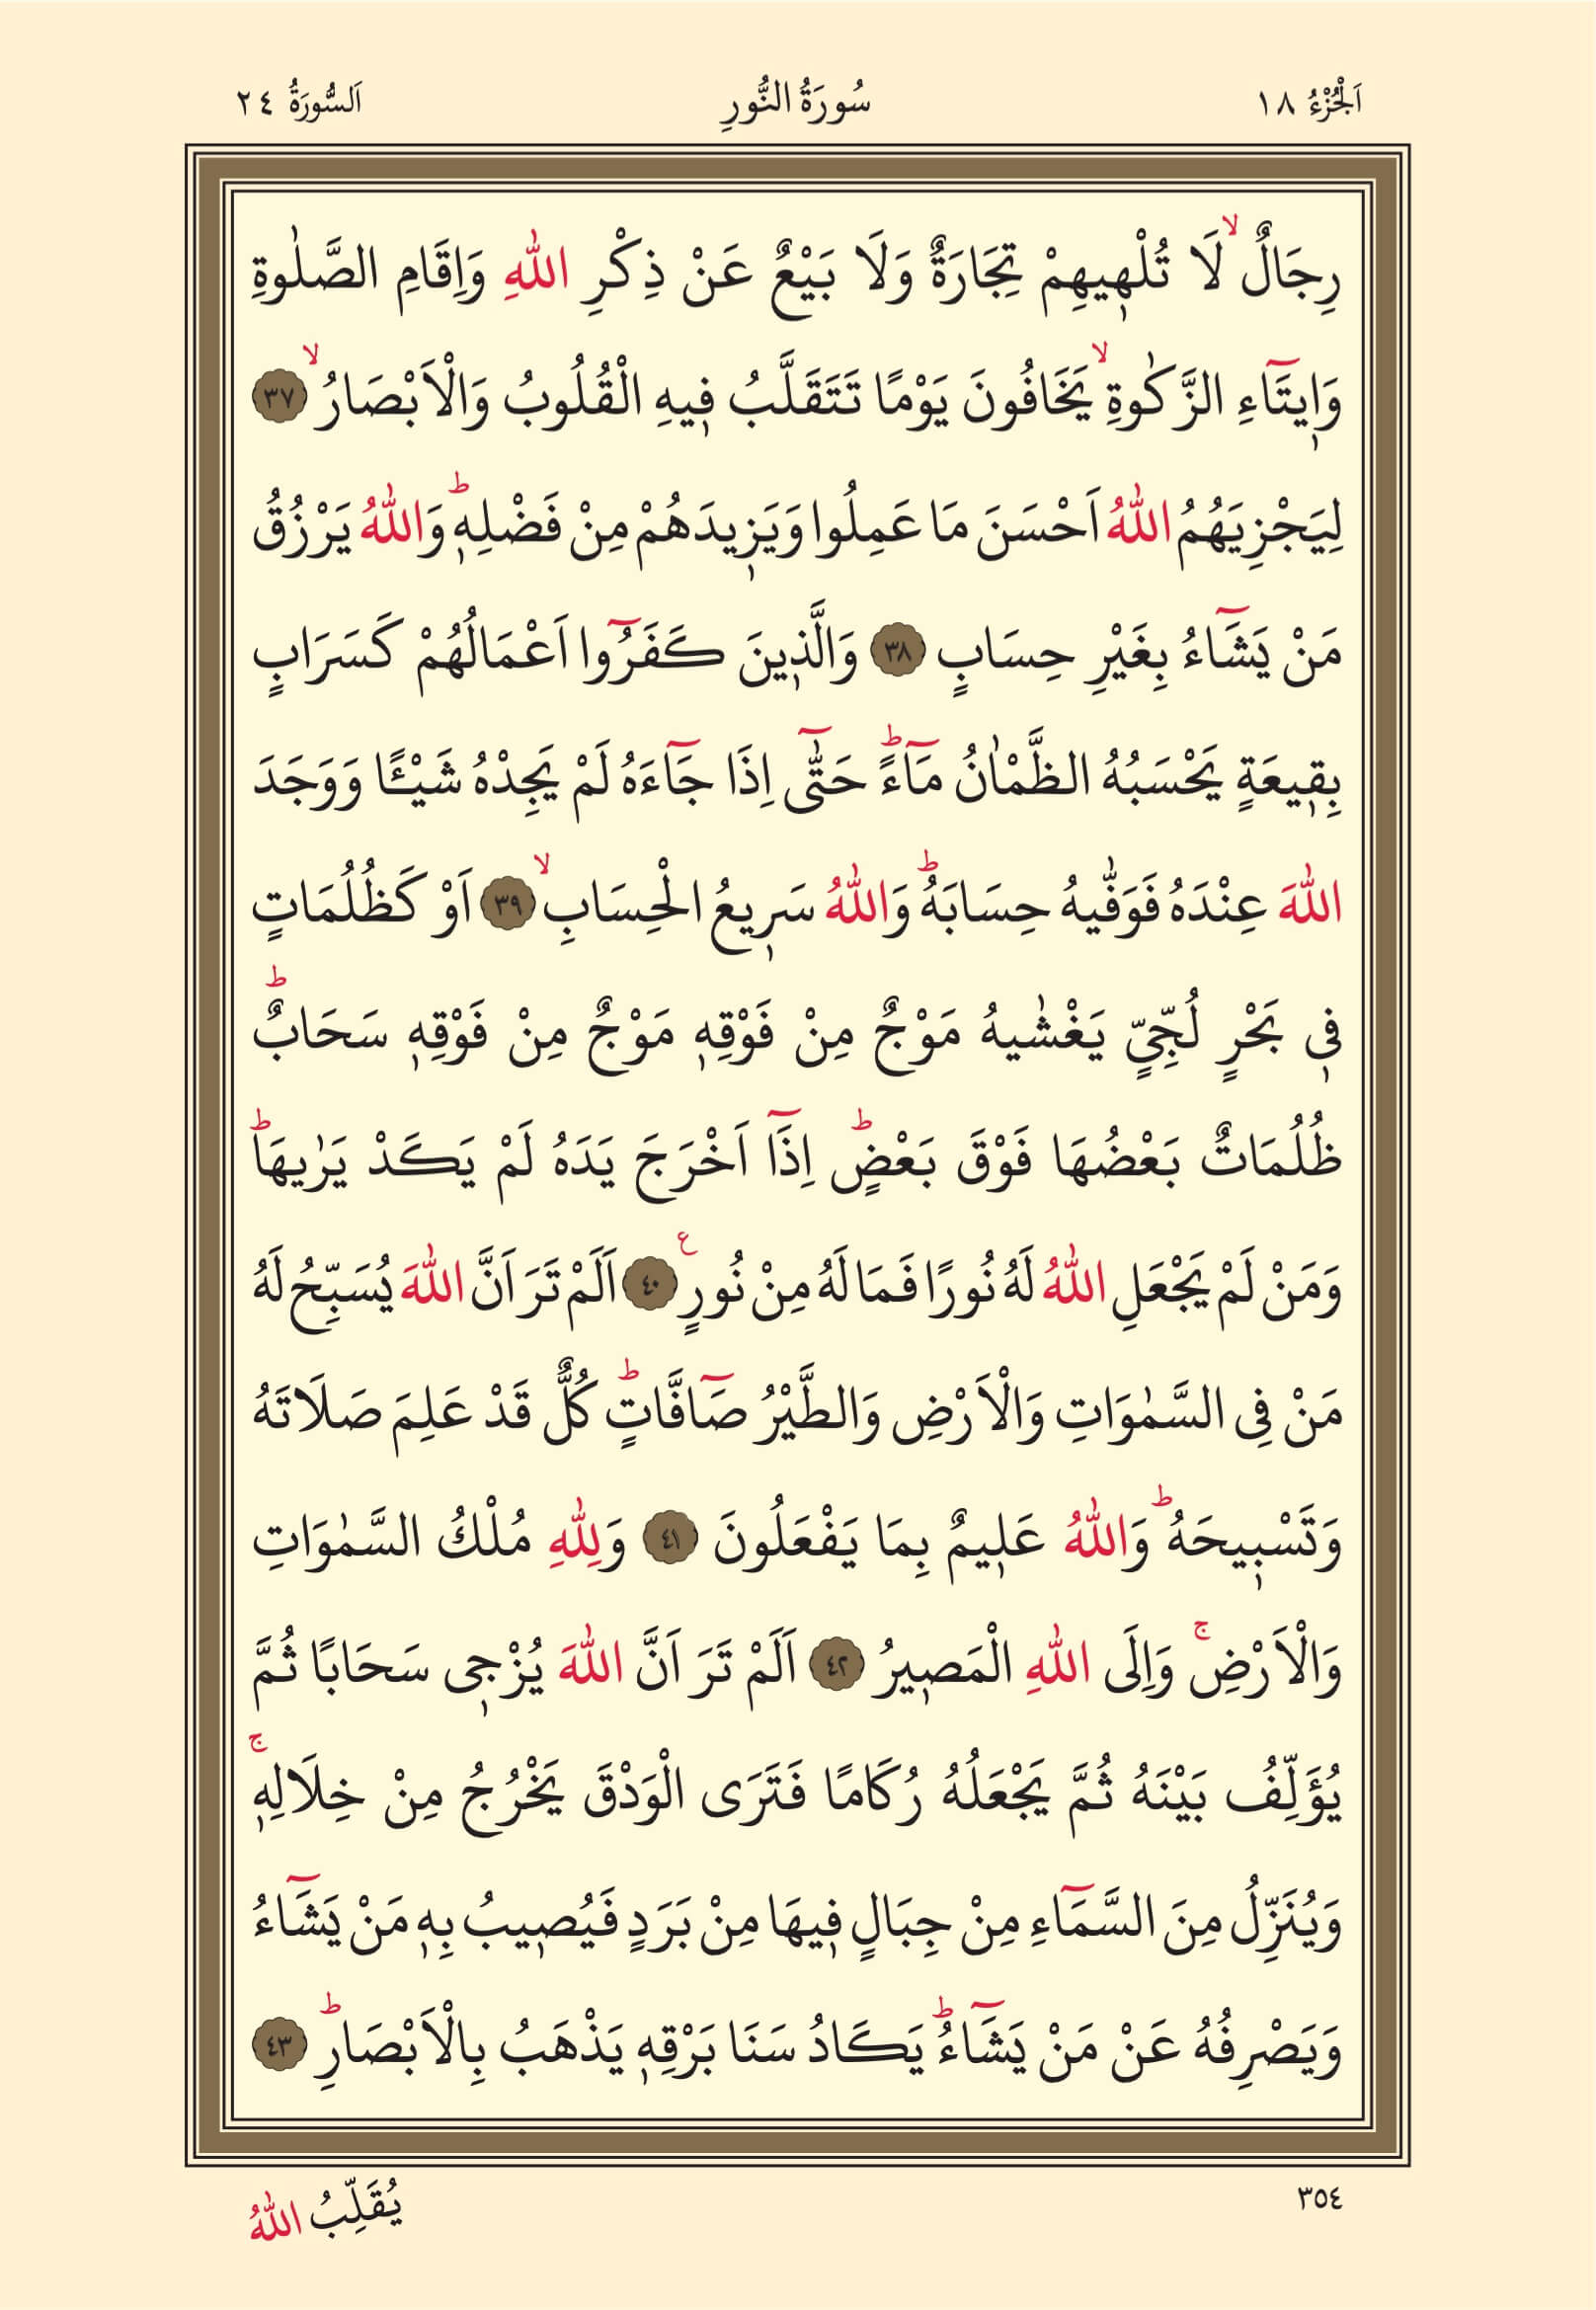 اَلْجُزْءُ ١٨ سُورَةُ النُّورِ اَلسُّورَةُ ٢٤
رِجَالٌۙ لَا تُلْهٖيهِمْ تِجَارَةٌ وَلَا بَيْعٌ عَنْ ذِكْرِ اللّٰهِ وَاِقَامِ الصَّلٰوةِ
وَاٖيتَٓاءِ الزَّكٰوةِۙ يَخَافُونَ يَوْمًا تَتَقَلَّبُ فٖيهِ الْقُلُوبُ وَالْاَبْصَارُۙ ٣٧
لِيَجْزِيَهُمُ اللّٰهُ اَحْسَنَ مَا عَمِلُوا وَيَزٖيدَهُمْ مِنْ فَضْلِهٖؕ وَاللّٰهُ يَرْزُقُ
مَنْ يَشَٓاءُ بِغَيْرِ حِسَابٍ ٣٨ وَالَّذٖينَ كَفَرُٓوا اَعْمَالُهُمْ كَسَرَابٍ
بِقٖيعَةٍ يَحْسَبُهُ الظَّمْاٰنُ مَٓاءًؕ حَتّٰٓى اِذَا جَٓاءَهُ لَمْ يَجِدْهُ شَيْـًٔا وَوَجَدَ
اللّٰهَ عِنْدَهُ فَوَفّٰيهُ حِسَابَهُؕ وَاللّٰهُ سَرٖيعُ الْحِسَابِۙ ٣٩ اَوْ كَظُلُمَاتٍ
فٖى بَحْرٍ لُجِّيٍّ يَغْشٰيهُ مَوْجٌ مِنْ فَوْقِهٖ مَوْجٌ مِنْ فَوْقِهٖ سَحَابٌؕ
ظُلُمَاتٌ بَعْضُهَا فَوْقَ بَعْضٍؕ اِذَٓا اَخْرَجَ يَدَهُ لَمْ يَكَدْ يَرٰيهَاؕ
وَمَنْ لَمْ يَجْعَلِ اللّٰهُ لَهُ نُورًا فَمَا لَهُ مِنْ نُورٍ ع ٤٠ اَلَمْ تَرَ اَنَّ اللّٰهَ يُسَبِّحُ لَهُ
مَنْ فِى السَّمٰوَاتِ وَالْاَرْضِ وَالطَّيْرُ صَٓافَّاتٍؕ كُلٌّ قَدْ عَلِمَ صَلَاتَهُ
وَتَسْبٖيحَهُؕ وَاللّٰهُ عَلٖيمٌ بِمَا يَفْعَلُونَ ٤١ وَلِلّٰهِ مُلْكُ السَّمٰوَاتِ
وَالْاَرْضِۚ وَاِلَى اللّٰهِ الْمَصٖيرُ ٤٢ اَلَمْ تَرَ اَنَّ اللّٰهَ يُزْجٖى سَحَابًا ثُمَّ
يُؤَلِّفُ بَيْنَهُ ثُمَّ يَجْعَلُهُ رُكَامًا فَتَرَى الْوَدْقَ يَخْرُجُ مِنْ خِلَالِهٖۚ
وَيُنَزِّلُ مِنَ السَّمَٓاءِ مِنْ جِبَالٍ فٖيهَا مِنْ بَرَدٍ فَيُصٖيبُ بِهٖ مَنْ يَشَٓاءُ
وَيَصْرِفُهُ عَنْ مَنْ يَشَٓاءُؕ يَكَادُ سَنَا بَرْقِهٖ يَذْهَبُ بِالْاَبْصَارِؕ ٤٣
٣٥٤ يُقَلِّبُ اللّٰهُ